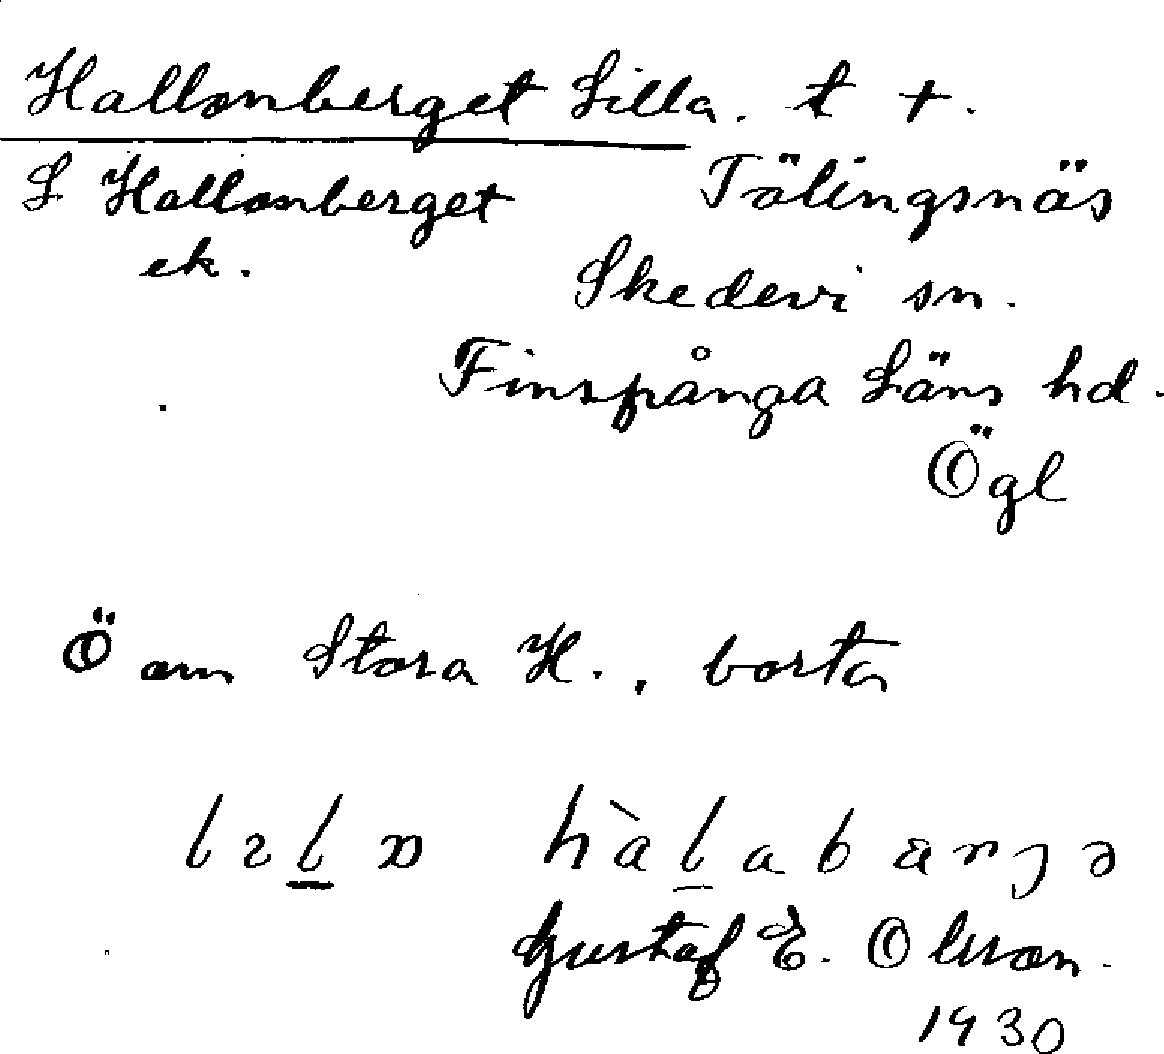 Hallonberget Lilla. t +.
L Hallonberget Tälingsnäs
ek.
Skedevi sn.
Finspånga Läns hd.
Ögl
Ö om Stora H., borta
Gustaf E. Olsson.
1930